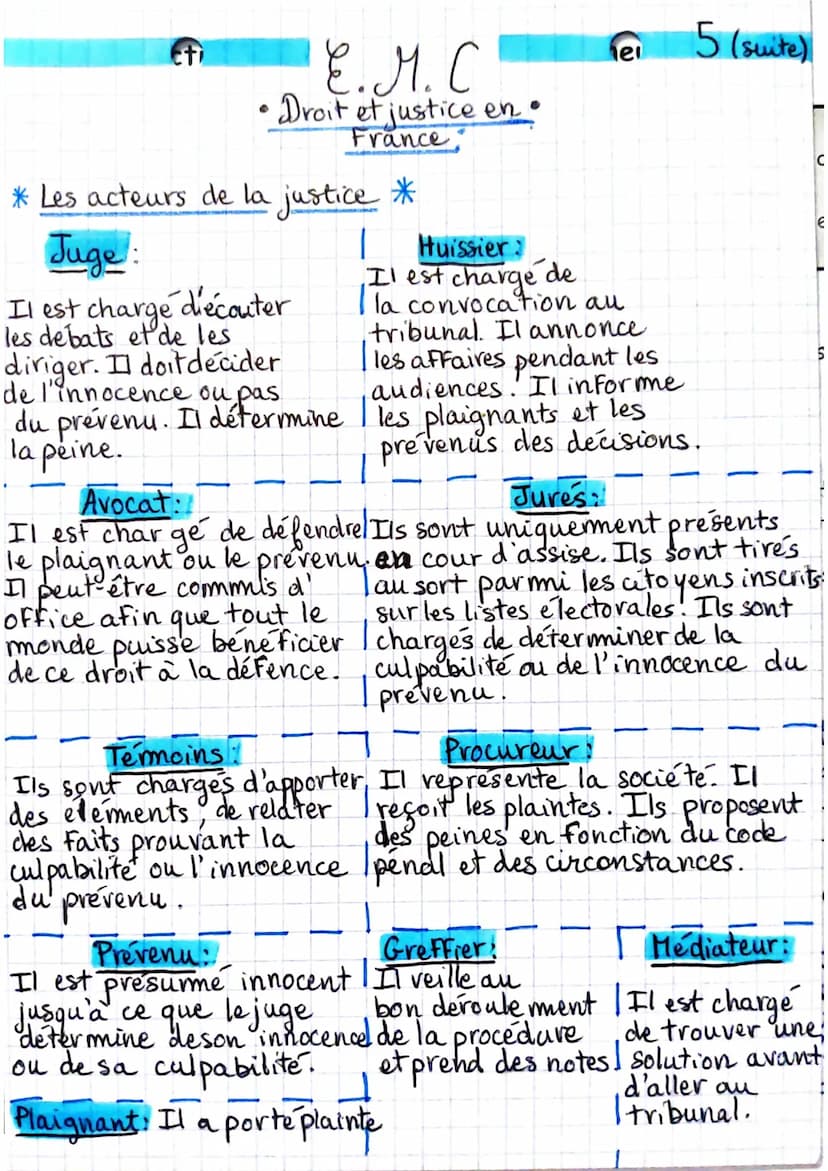 E.M.C
5 (suite)
• Droit et justice en •
France.
* Les acteurs de la justice *
Juge :
Il est chargé d'écouter
les débats et de les
diriger. Il doit décider
de l'innocence ou pas
du prévenu. Il détermine
la peine.
Huissier :
Il est chargé de
la convocation au
tribunal. Il annonce
les affaires pendant les
audiences. Il informe
les plaignants et les
prévenus des décisions.
Avocat :
Il est chargé de défendre
le plaignant ou le prévenu.
Il peut-être commis d'
office afin que tout le
monde puisse bénéficier
de ce droit à la défence.
Jurés :
Ils sont uniquement présents
en cour d'assise. Ils sont tirés
au sort parmi les citoyens inscrits
sur les listes électorales. Ils sont
chargés de déterminer de la
culpabilité ou de l'innocence du
prévenu.
Témoins :
Ils sont chargés d'apporter
des éléments, de relater
des faits prouvant la
culpabilité ou l'innocence
du prévenu.
Procureur :
Il représente la société. Il
reçoit les plaintes. Ils proposent
des peines en fonction du code
pénal et des circonstances.
Prévenu :
Il est présumé innocent
jusqu'à ce que le juge
détermine de son innocence
ou de sa culpabilité.
Greffier :
Il veille au
bon déroulement
de la procédure
et prend des notes
Médiateur :
Il est chargé
de trouver une
solution avant
d'aller au
tribunal.
Plaignant : Il a porté plainte